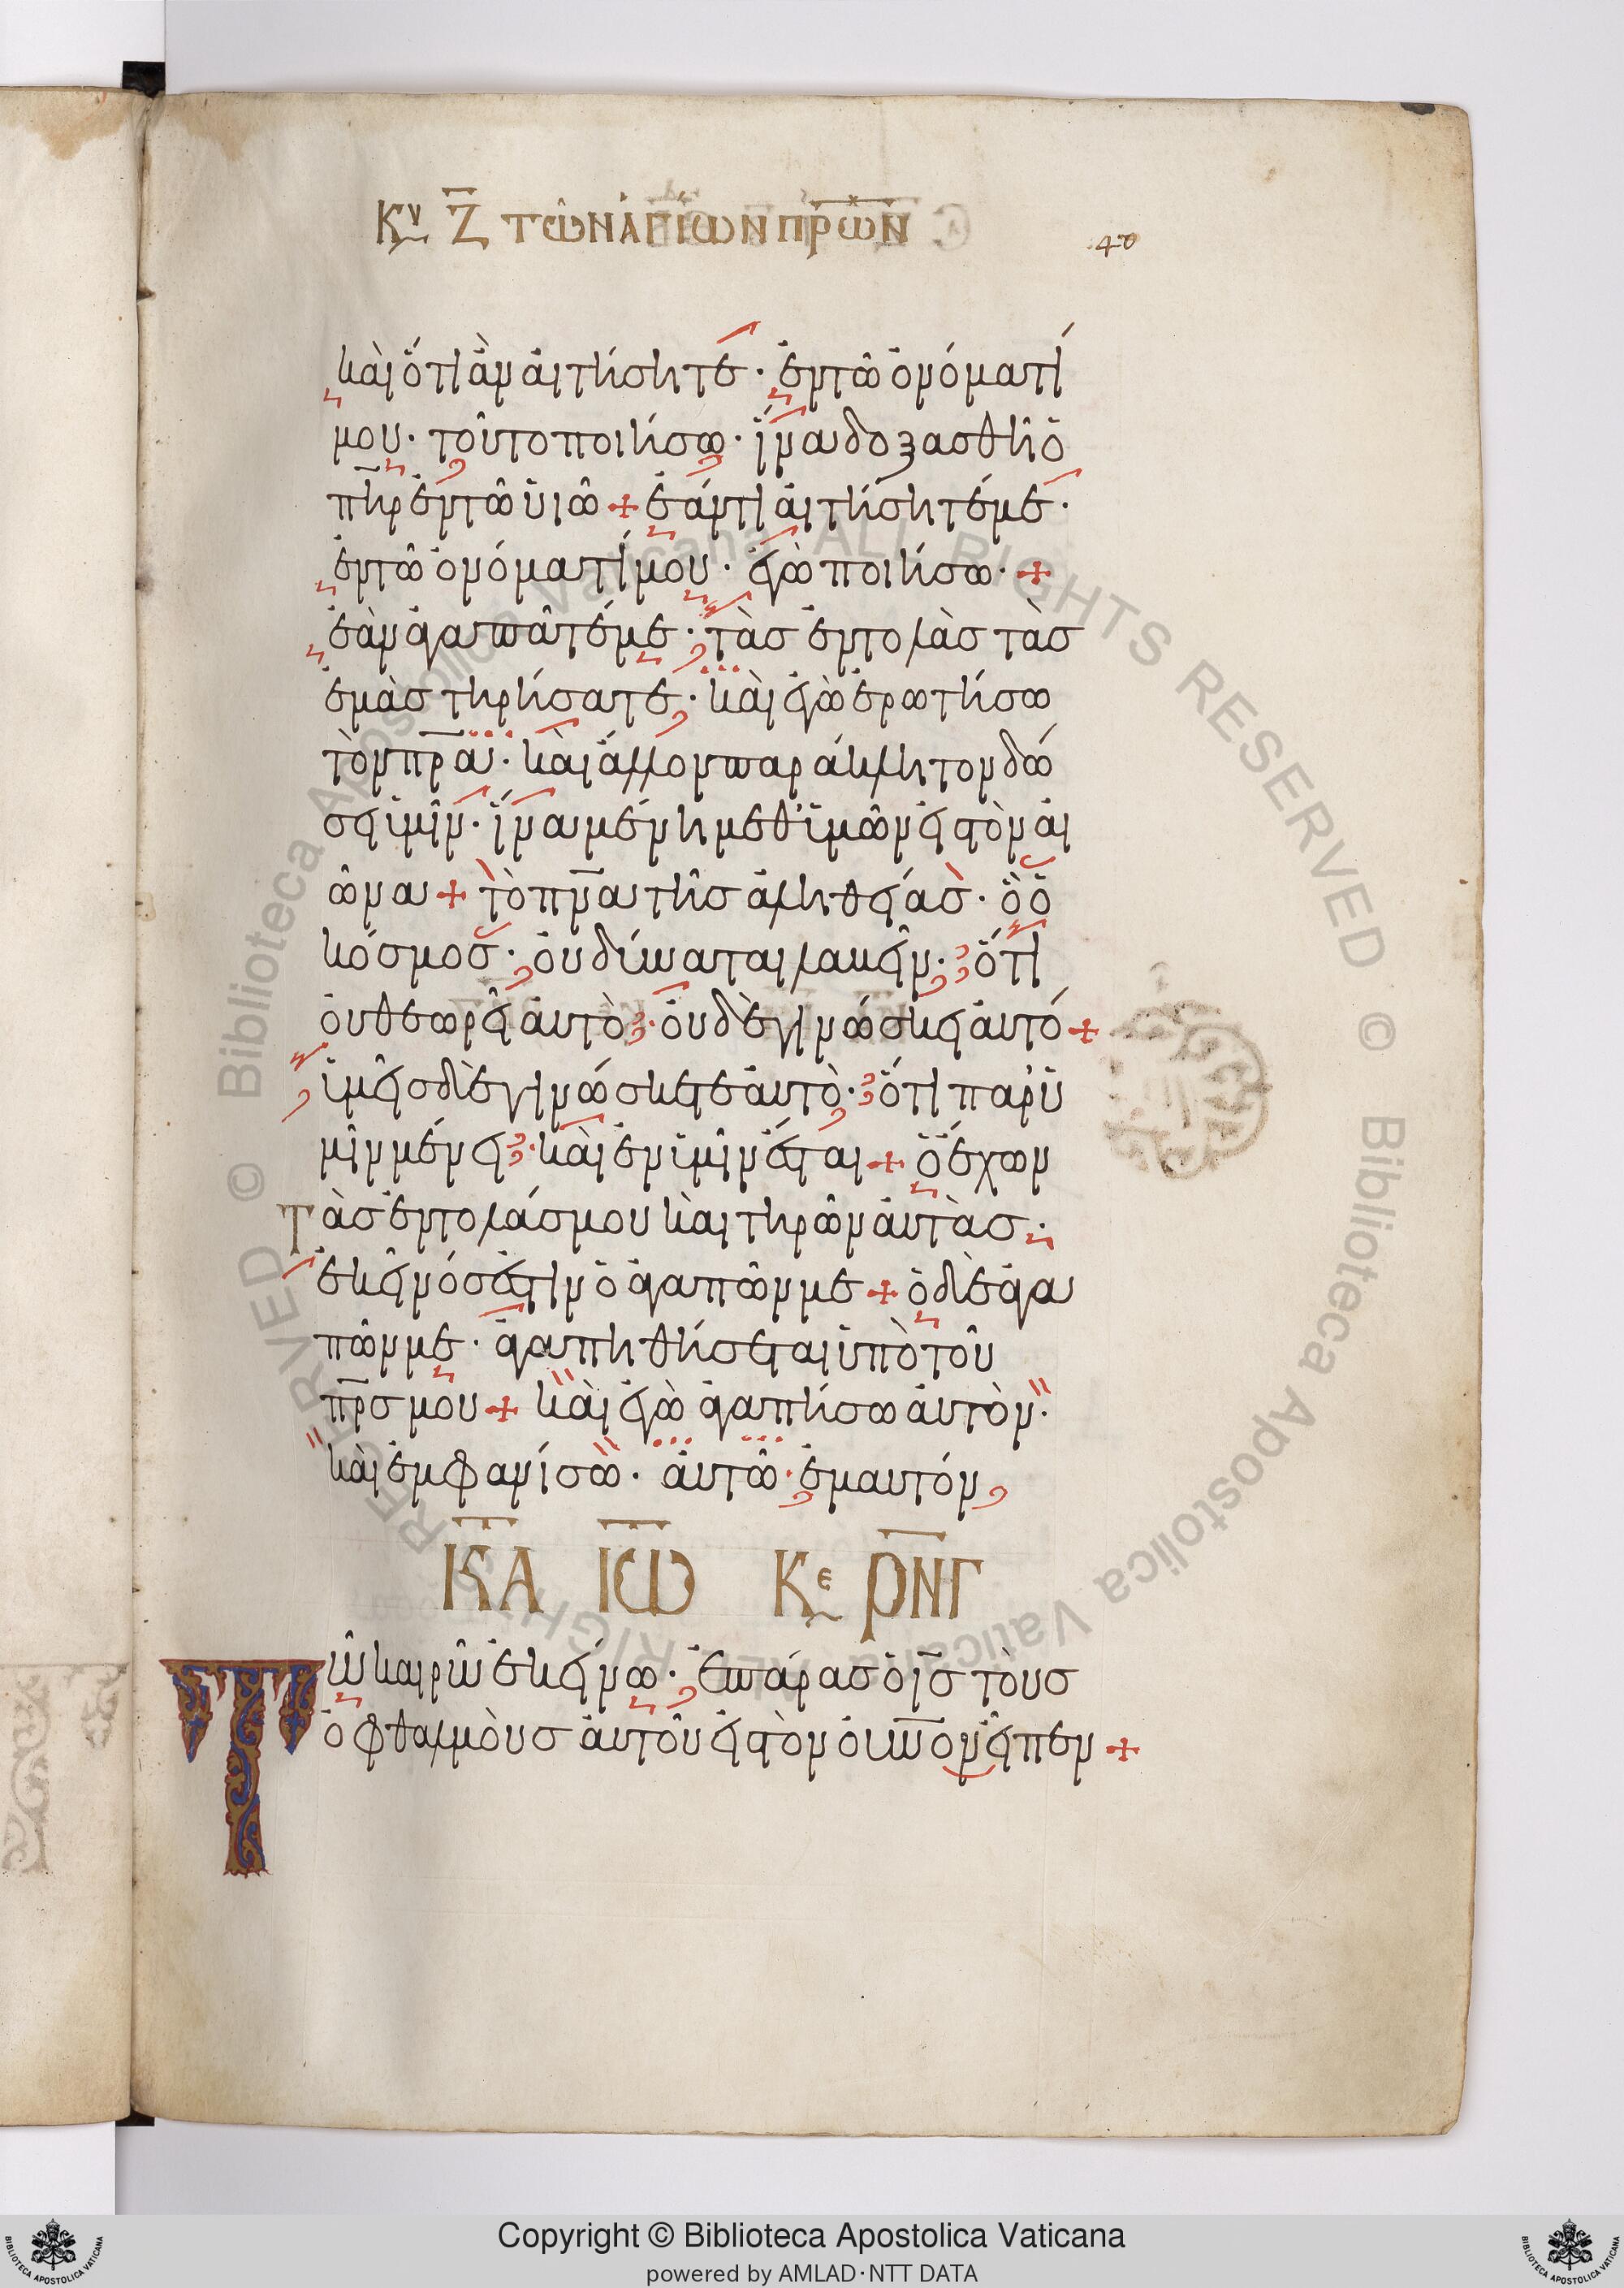 Κυ Ζ τῶν ἁγίων πρων
40
καὶ ὅτι ἂν αἰτήσητε· ἐν τῶ ὀνόματί
μου· τοῦτο ποιήσω· ἵνα δοξασθῆ ὁ
πηρ ἐν τῶ ὑιῶ + ἐάν τι αἰτήσητέ με·
ἐν τῶ ὀνόματί μου· ἐγὼ ποιήσω· +
ἐὰν ἀγαπᾶτέ με· τὰς ἐντολὰς τὰς
ἐμὰς τηρήσατε· καὶ ἐγὼ ἐρωτήσω
τὸν πρα· καὶ ἄλλον παράκλητον δώ
σει ὑμῖν· ἵνα μένη μεθ' ὑμῶν εἰς τὸν αἰ
ῶνα + τὸ πνα τῆς ἀληθείας· ὃ ὁ
κόσμος· οὐ δύναται λαβεῖν· ὅτι
οὐ θεωρεῖ αὐτὸ· οὐδὲ γινώσκει αὐτό +
ὑμεῖς δὲ γινώσκετε αὐτὸ· ὅτι παρ' ὑ
μῖν μένει· καὶ ἐν ὑμῖν ἔσται + ὁ ἔχων
τὰς ἐντολάς μου καὶ τηρῶν αὐτὰς·
ἐκεῖνός ἐστιν ὁ ἀγαπῶν με + ὁ δὲ ἀγα
πῶν με· ἀγαπηθήσεται ὑπὸ τοῦ
πρς μου + καὶ ἐγὼ ἀγαπήσω αὐτὸν·
καὶ ἐμφανίσω· αὐτῶ· ἐμαυτόν
ΚΑ ΙΩ Κε ΡΝΓ
Τῶ καιρῶ ἐκείνω· ἐπάρας ὁ ις τοὺς
ὀφθαλμοὺς αὐτοῦ εἰς τὸν οὐνον εἶπεν +
© Biblioteca Apostolica Vaticana ALL RIGHTS RESERVED © Biblioteca Apostolica Vaticana ALL RIGHTS RESERVED
Copyright © Biblioteca Apostolica Vaticana
powered by AMLAD·NTT DATA